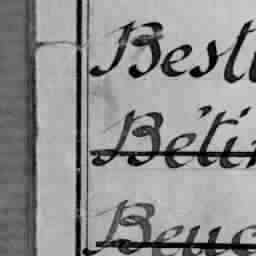 Besti
Bétin
Beuc